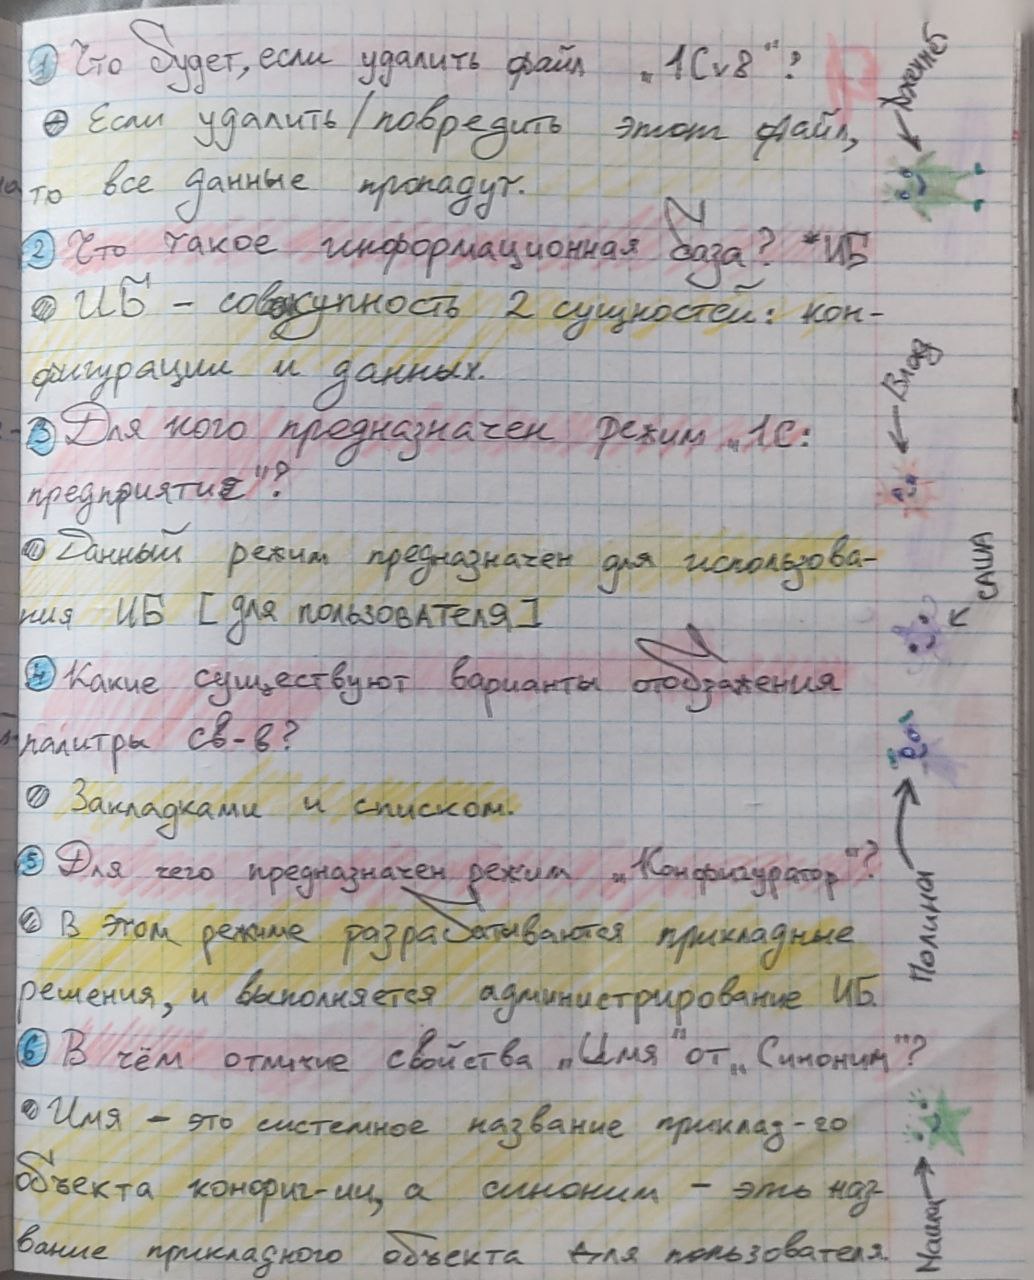 1 Что будет, если удалить файл „1Cv8“?
Если удалить/повредить этот файл,
то все данные пропадут.
2 Что такое информационная база? *ИБ
ИБ – совокупность 2 сущностей: кон-
фигурации и данных.
3 Для кого предназначен режим „1С:
предприятие“?
Данный режим предназначен для использова-
ния ИБ [для пользователя]
4 Какие существуют варианты отображения
палитры св-в?
Закладками и списком.
5 Для чего предназначен режим „Конфигуратор“?
В этом режиме разрабатываются прикладные
решения, и выполняется администрирование ИБ.
6 В чём отличие свойства „Имя“ от „Синоним“?
Имя – это системное название приклад-го
объекта конфиг-ии, а синоним – это наз-
вание прикладного объекта для пользователя.
Влад
САША
Полина